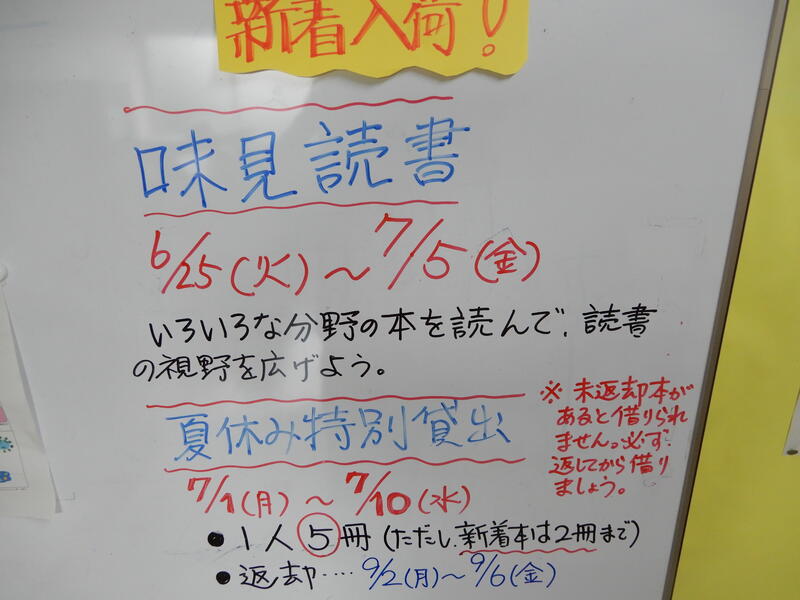 新着入荷!
味見読書
6/25(火)〜7/5(金)
いろいろな分野の本を読んで、読書
の視野を広げよう。
夏休み特別貸出
7/1(月)〜7/10(水)
●1人⑤冊(ただし、新着本は2冊まで)
●返却‥‥9/2(月)〜9/6(金)
※未返却本が
あると借りられ
ません。必ず
返してから借り
ましょう。